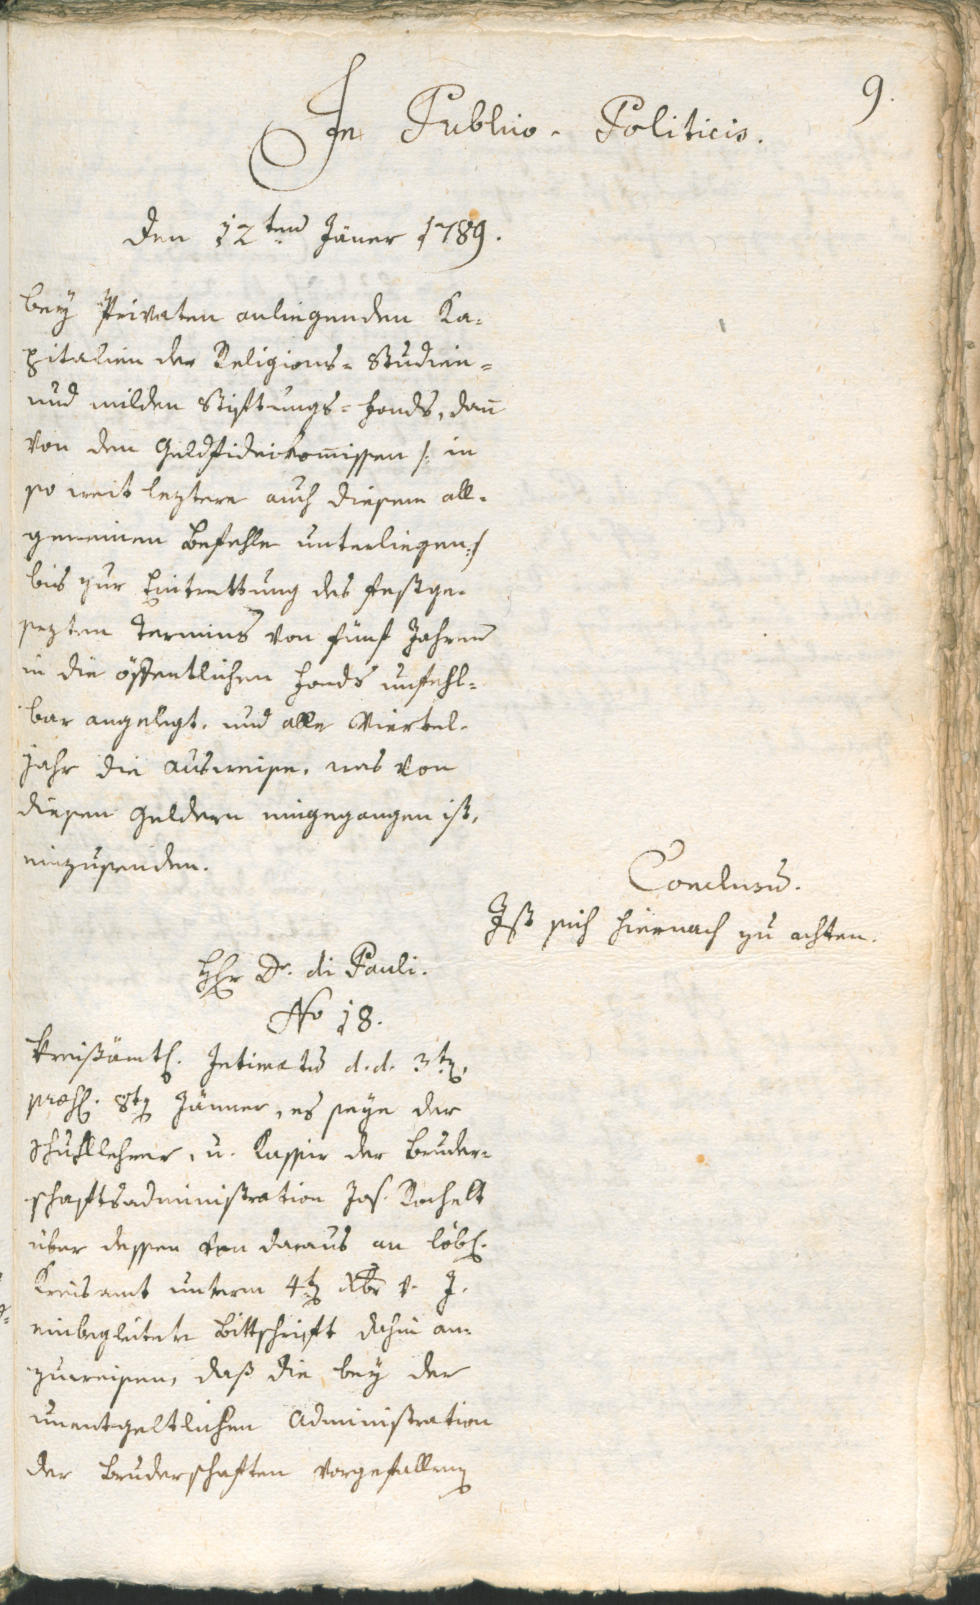 9.
In Publico-Politicis.
Den 12ten Jäner 1789.
bey Privaten anliegenden Ka-
pitalien der Religions- Studien-
und milden Stiftungs-Fonds, dan̄
von den Geldfideikom̄issen /: in
so weit leztere auch diesem all-
gemeinen Befehle unterliegen :/
bis zur Eintrettung des festge-
sezten Termins von fünf Jahren
in die öffentlichen Fonds unfehl-
bar angelegt, und alle Viertel-
Jahr die Ausweise, was von
diesen Geldern eingegangen ist,
einzusenden.
Conclusum.
Ist sich hiernach zu achten.
Hr Dr. di Pauli.
No 18.
Kreisämtl. Intimatum d. d. 3tn,
præs. 8tn Jänner, es seye der
Schullehrer, u. Kassir der Bruder-
schaftsadministration Jos. Rochelt
über dessen von daraus an löbl.
Kreisamt unterm 4tn Xbr v. J.
einbegleitete Bittschrift dahin an-
zuweisen, daß die bey der
unentgeltlichen Administration
der Bruderschaften vorgefallenen